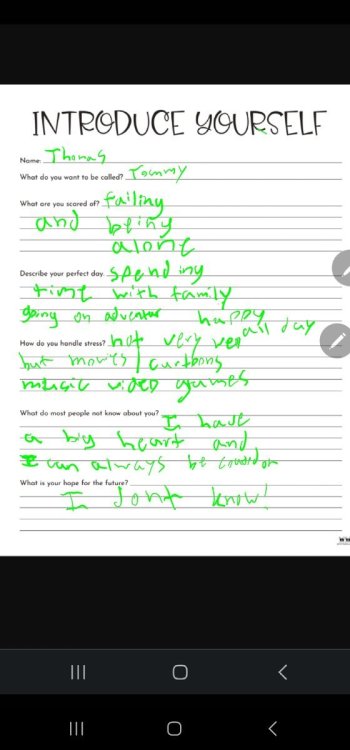 INTRODUCE YOURSELF
Name: Thomas
What do you want to be called? Tommy
What are you scared of? failing
and being
alone
Describe your perfect day. spending
time with family
going on adventur happy all day
How do you handle stress? not very vel
but movies / cartoons
music video games
What do most people not know about you? I have
a big heart and
I can always be counted on
What is your hope for the future?
I dont know!